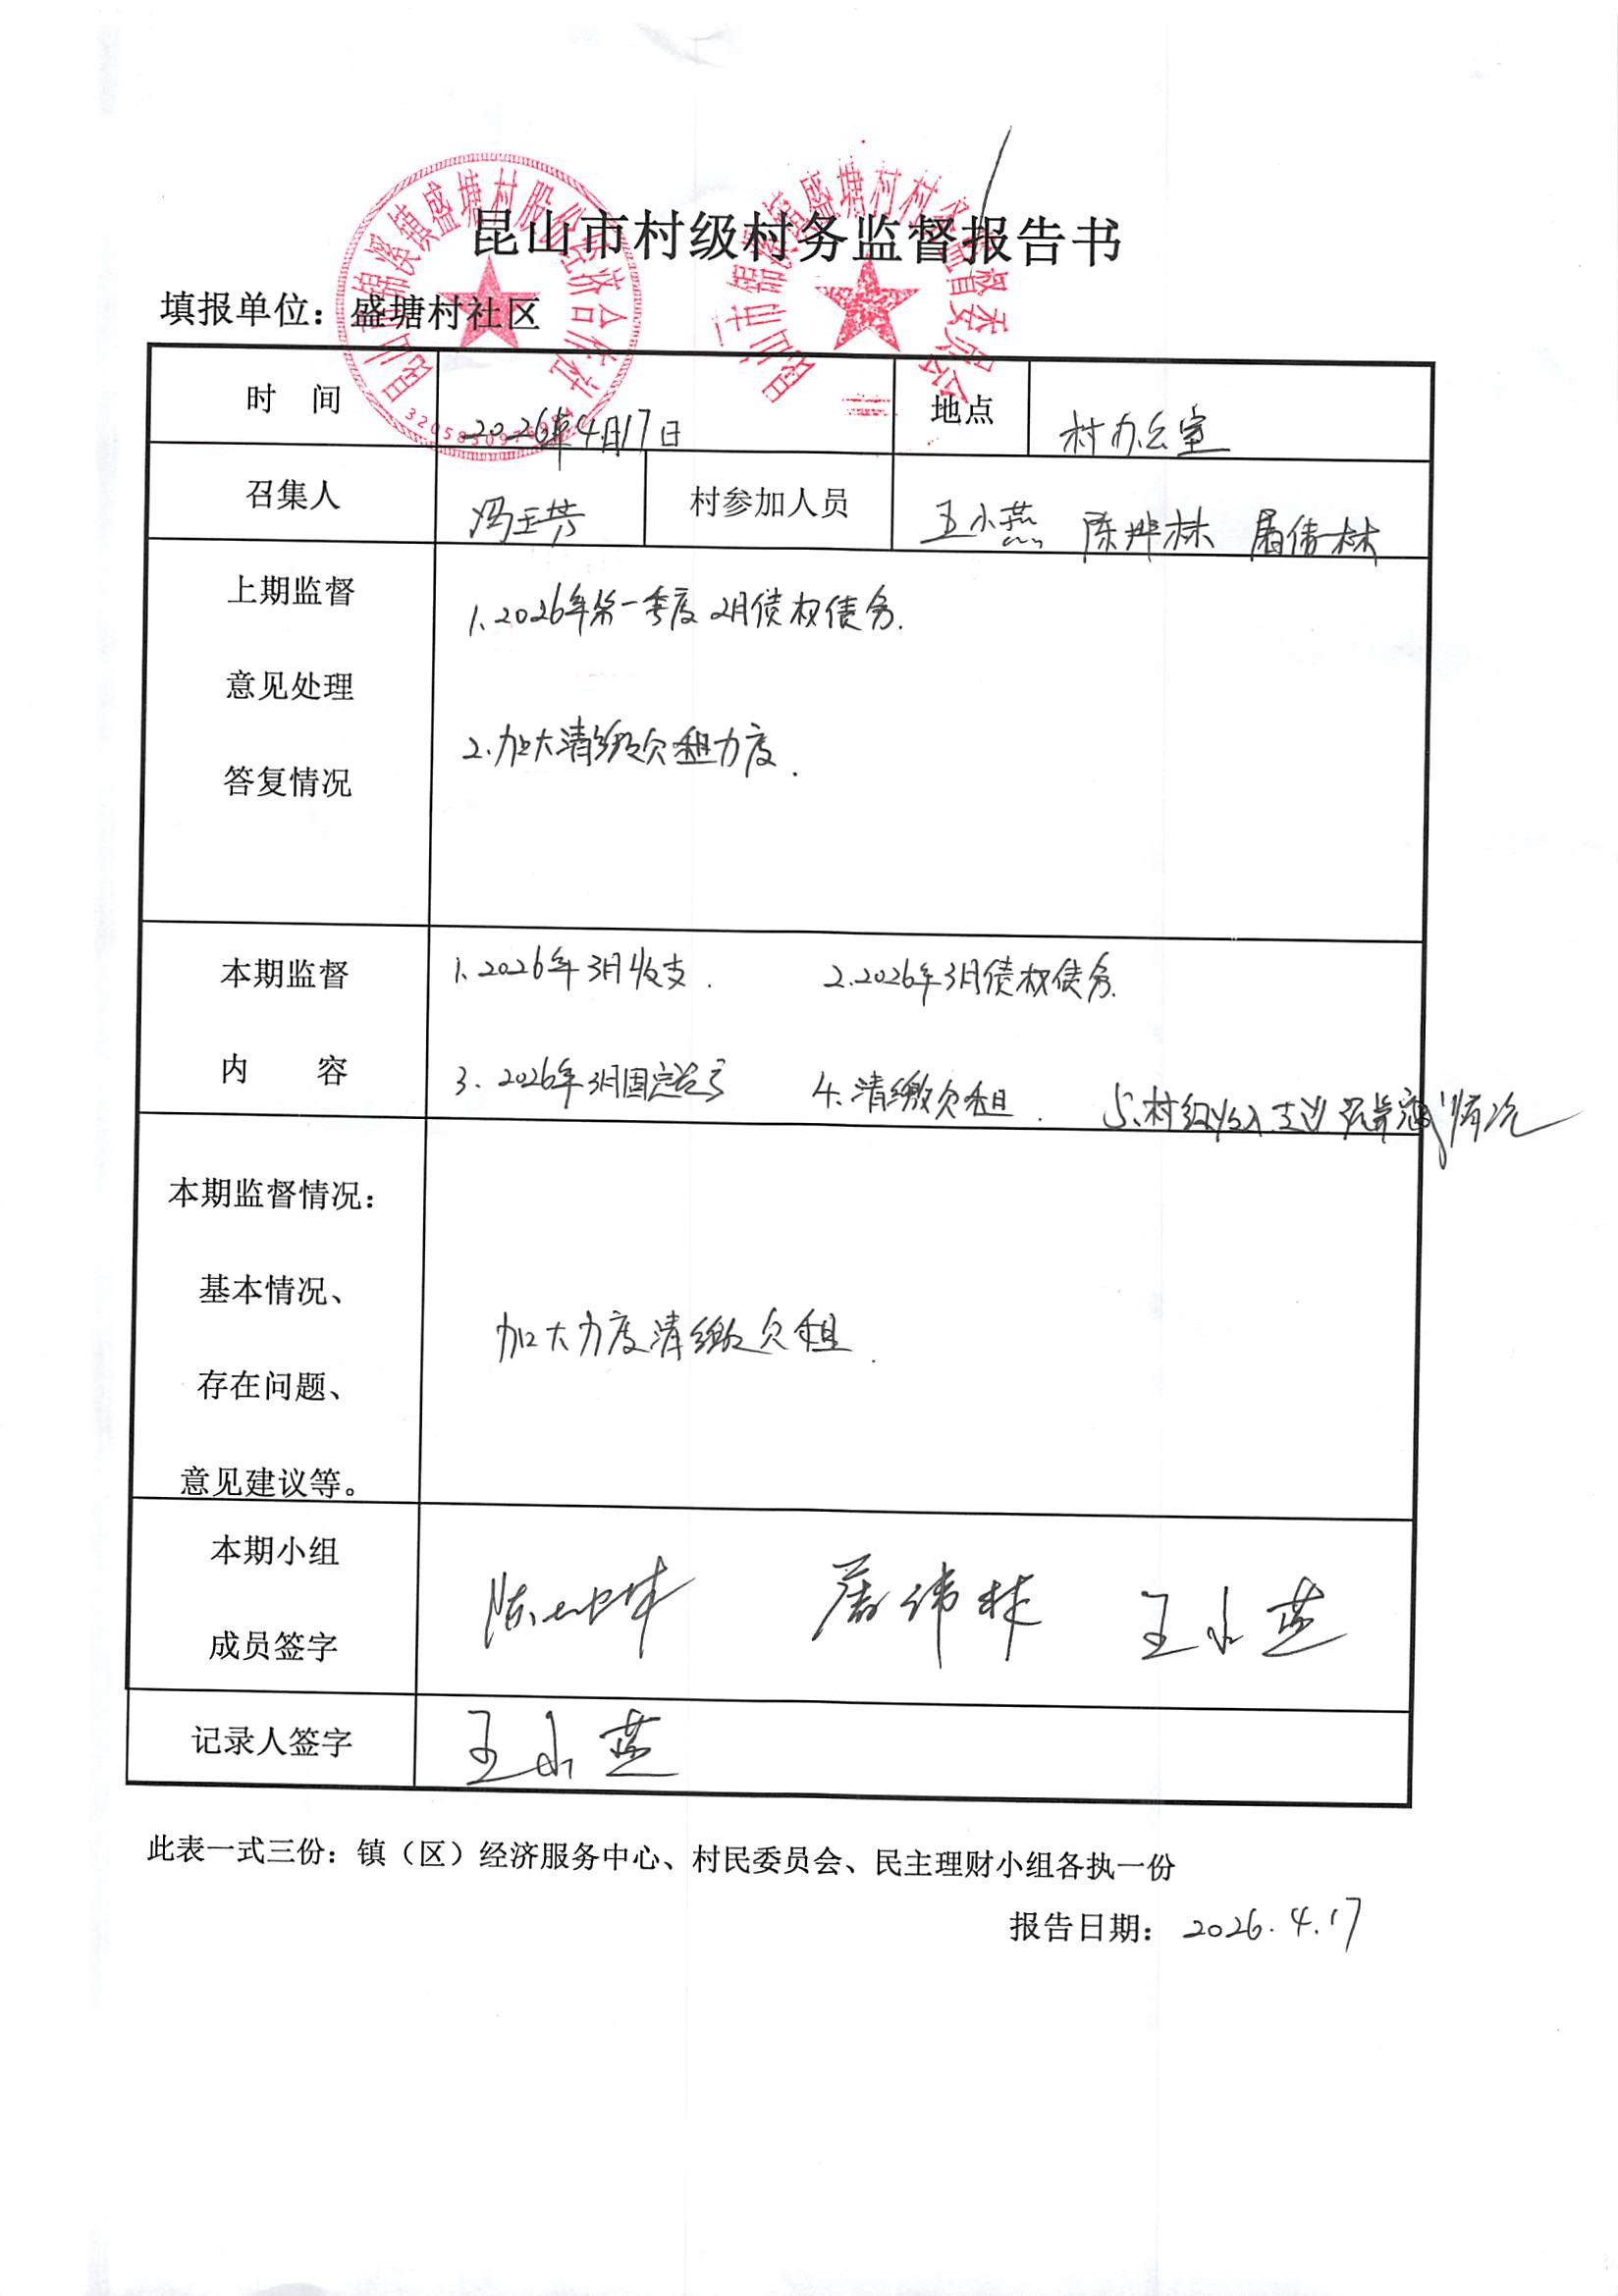 昆山市村级村务监督报告书
填报单位：盛塘村社区
昆山市锦溪镇盛塘村股份经济合作社
昆山市锦溪镇盛塘村村务监督委员会
时 间 2026年4月17日 地点 村办公室
召集人 冯玉芳 村参加人员 王小燕 陈 林 屠伟林
上期监督
意见处理
答复情况
1、2026年第一季度2月债权债务.
2、加大清缴欠租力度.
本期监督
内 容
1、2026年3月收支. 2.2026年3月债权债务.
3、2026年3月固定 4.清缴欠租. 5、村级收入、支出 情况
本期监督情况：
基本情况、
存在问题、
意见建议等。
加大力度清缴欠租.
本期小组
成员签字
陈 屠伟林 王小燕
记录人签字 王小燕
此表一式三份：镇（区）经济服务中心、村民委员会、民主理财小组各执一份
报告日期： 2026.4.17